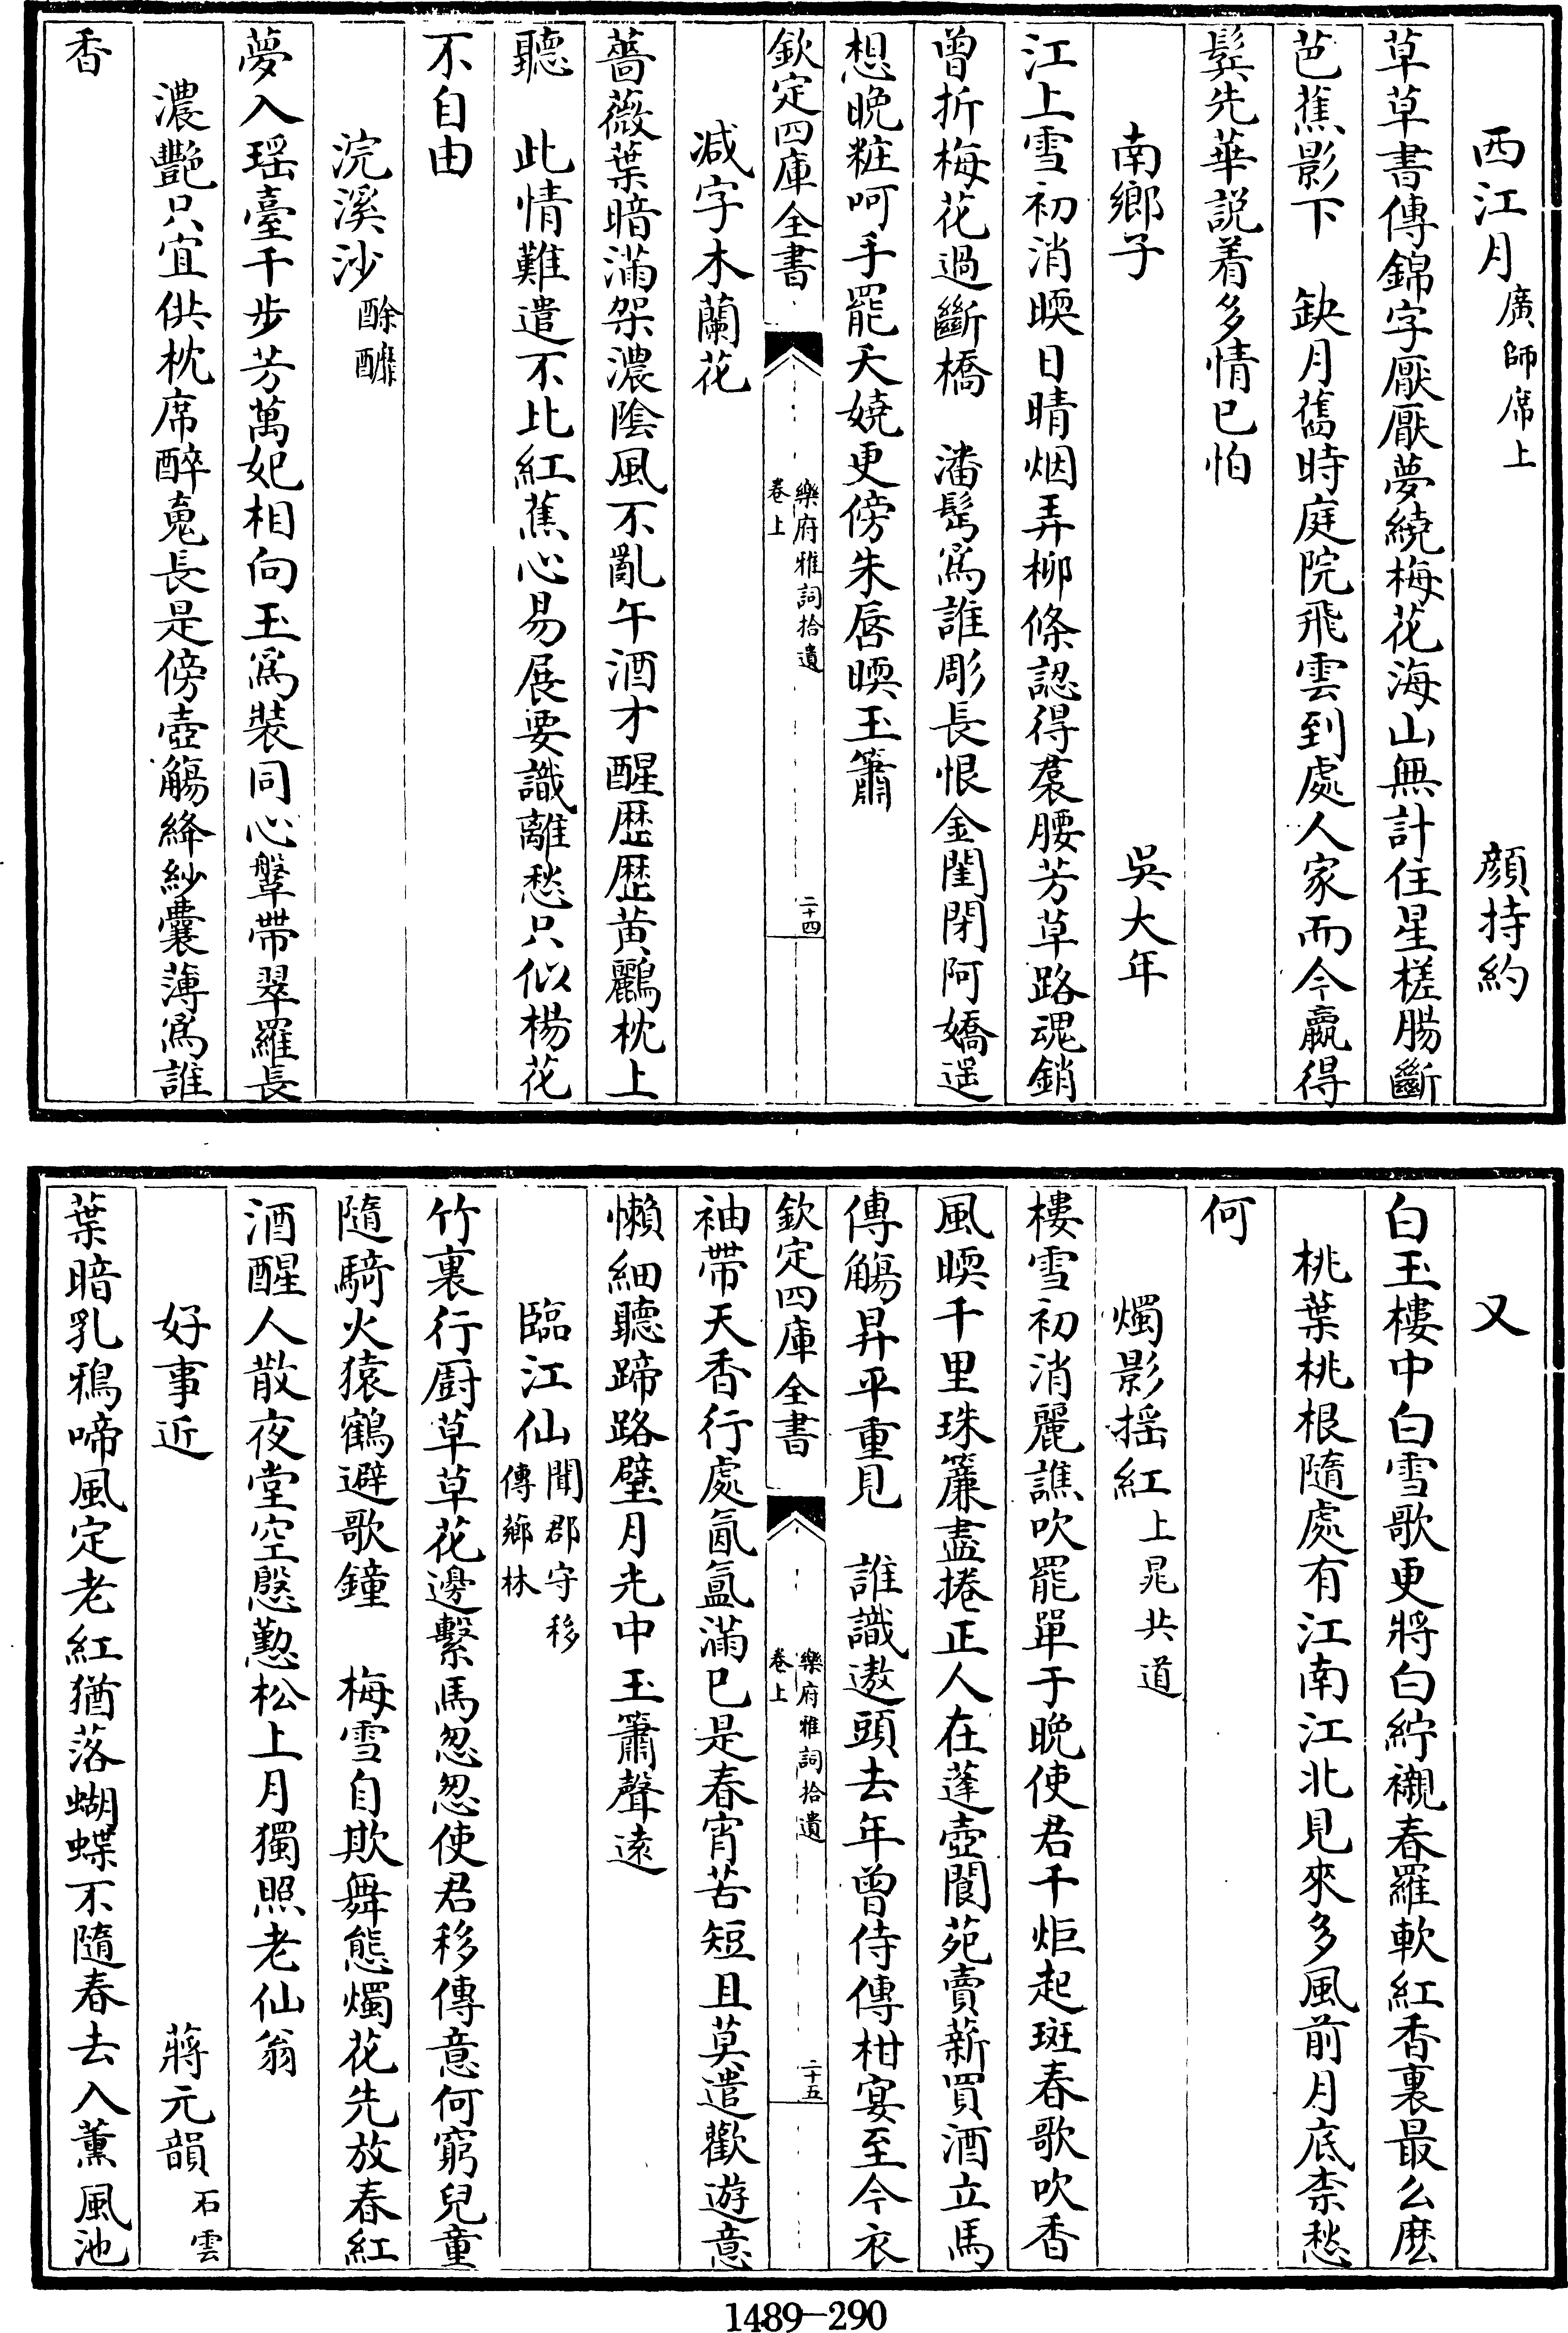 西江月廣師席上　顔持約
草草書傳錦字厭厭夢繞梅花海山無計住星槎腸斷
芭蕉影下　缺月舊時庭院飛雲到處人家而今贏得
鬂先華説着多情已怕
南鄉子　吳大年
江上雪初消暖日晴烟弄柳條認得裠腰芳草路魂銷
曾折梅花過斷橋　潘髩為誰彫長恨金閨閉阿嬌遥
想晚粧呵手罷夭嬈更傍朱唇暖玉簫
欽定四庫全書　樂府雅詞拾遺卷上　二十四
減字木蘭花
薔薇葉暗滿架濃陰風不亂午酒才醒歴歴黄鸝枕上
聽　此情難遣不比紅蕉心易展要識離愁只似楊花
不自由
浣溪沙酴醾
夢入瑶臺千步芳萬妃相向玉為裝同心鞶帶翠羅長
濃艷只宜供枕席醉䰟長是傍壺觴絳紗囊薄為誰
香
又
白玉樓中白雪歌更將白紵襯春羅軟紅香裏最么麽
桃葉桃根隨處有江南江北見來多風前月底柰愁
何
燭影揺紅上晁共道
樓雪初消麗譙吹罷單于晚使君千炬起斑春歌吹香
風暖千里珠簾盡捲正人在蓬壺閬苑賣薪買酒立馬
傳觴昇平重見　誰識遨頭去年曾侍傳柑宴至今衣
欽定四庫全書　樂府雅詞拾遺卷上　二十五
袖帶天香行處氤氲滿已是春宵苦短且莫遣歡遊意
懶細聽蹄路璧月光中玉簫聲遠
臨江仙聞郡守移傳薌林
竹裏行厨草草花邊繫馬忽忽使君移傳意何窮兒童
隨騎火猿鶴避歌鐘　梅雪自欺舞態燭花先放春紅
酒醒人散夜堂空慇懃松上月獨照老仙翁
好事近　蔣元韻石雲
葉暗乳鴉啼風定老紅猶落蝴蝶不隨春去入薰風池
1489—290